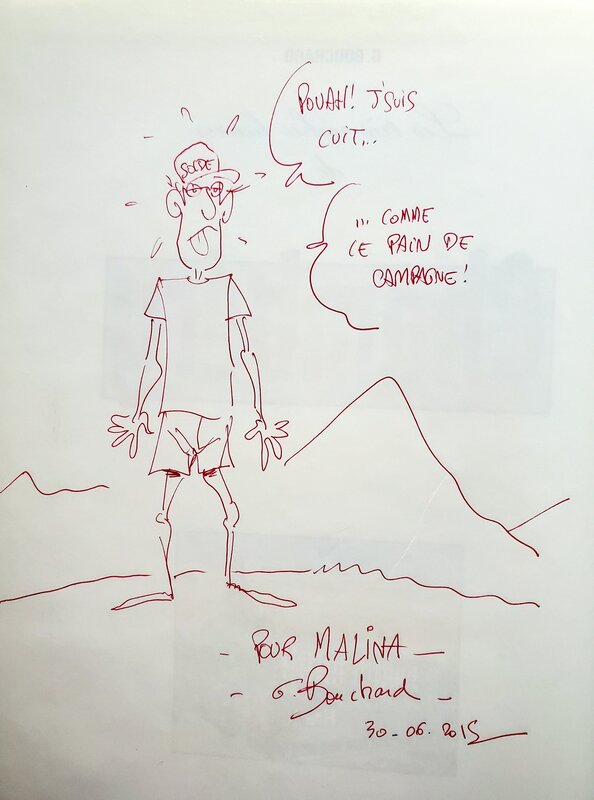 POUAH! J'SUIS
CUIT...
... COMME
LE PAIN DE
CAMPAGNE!
SOLDE
- POUR MALINA -
- G. Bouchard -
30-06.2015